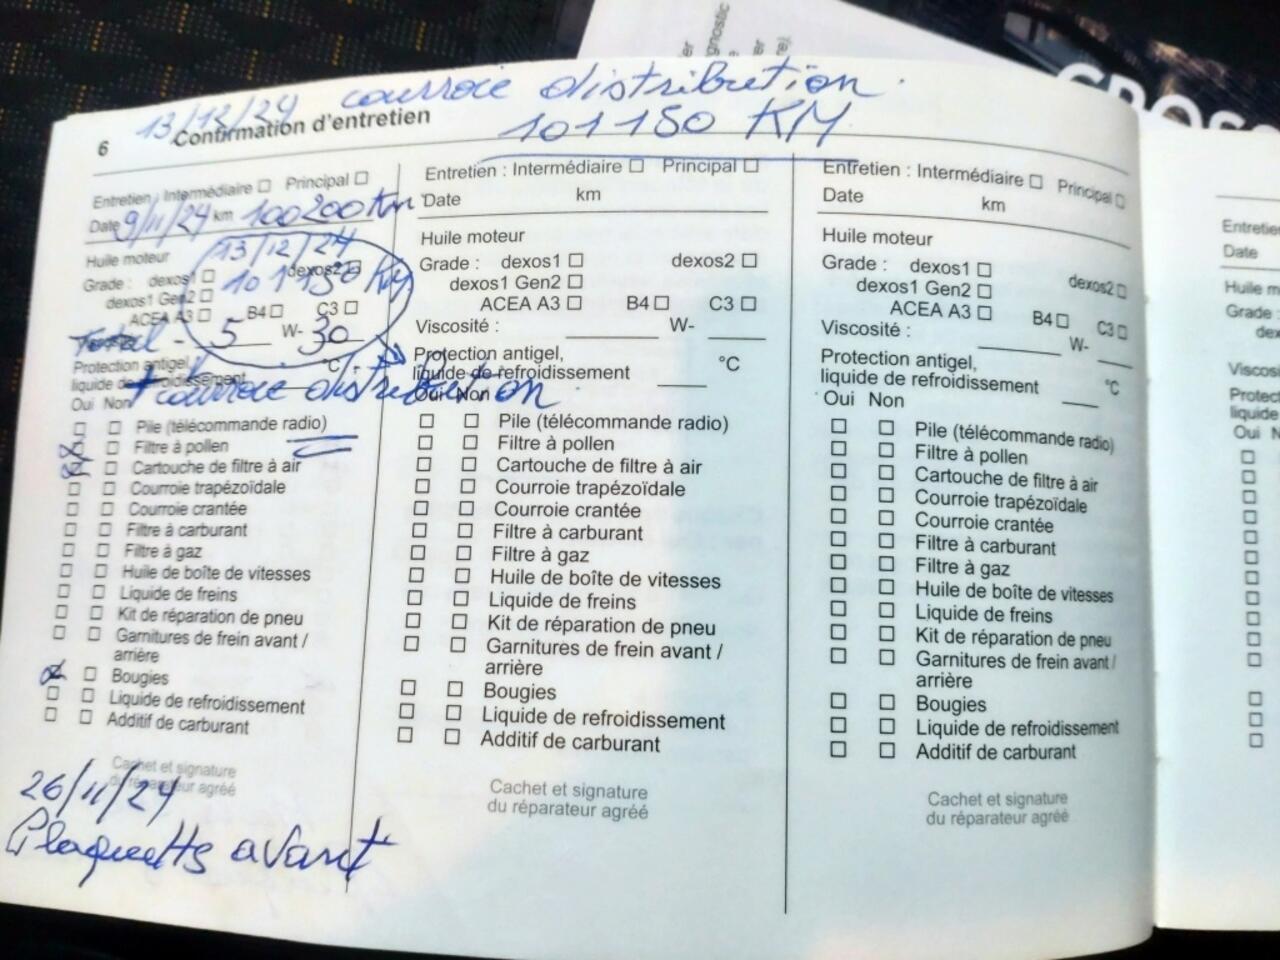 gnostic
er
er
GROS
13/12/24 courroie distribution.
101150 KM
6 Confirmation d'entretien
Entretien : Intermédiaire ☐ Principal ☐
Date 9/11/24 km 100200 Km
13/12/24
101150 Km
Huile moteur
Grade : dexos1 ☐ dexos2 ☐
dexos1 Gen2 ☐
ACEA A3 ☐ B4 ☐ C3 ☐
Total - 5 W- 30
Protection antigel, °C
liquide de refroidissement
+ courroie distribution.
Oui Non
☐ ☐ Pile (télécommande radio)
☒ Filtre à pollen
☒ Cartouche de filtre à air
☐ ☐ Courroie trapézoïdale
☐ ☐ Courroie crantée
☐ ☐ Filtre à carburant
☐ ☐ Filtre à gaz
☐ ☐ Huile de boîte de vitesses
☐ ☐ Liquide de freins
☐ ☐ Kit de réparation de pneu
☐ ☐ Garnitures de frein avant /
arrière
☒ ☐ Bougies
☐ ☐ Liquide de refroidissement
☐ ☐ Additif de carburant
Cachet et signature
du réparateur agréé
26/11/24
Plaquetts avant
Entretien : Intermédiaire ☐ Principal ☐
Date km
Huile moteur
Grade : dexos1 ☐ dexos2 ☐
dexos1 Gen2 ☐
ACEA A3 ☐ B4 ☐ C3 ☐
Viscosité : W-
Protection antigel, °C
liquide de refroidissement
Oui Non
☐ ☐ Pile (télécommande radio)
☐ ☐ Filtre à pollen
☐ ☐ Cartouche de filtre à air
☐ ☐ Courroie trapézoïdale
☐ ☐ Courroie crantée
☐ ☐ Filtre à carburant
☐ ☐ Filtre à gaz
☐ ☐ Huile de boîte de vitesses
☐ ☐ Liquide de freins
☐ ☐ Kit de réparation de pneu
☐ ☐ Garnitures de frein avant /
arrière
☐ ☐ Bougies
☐ ☐ Liquide de refroidissement
☐ ☐ Additif de carburant
Cachet et signature
du réparateur agréé
Entretien : Intermédiaire ☐ Principal ☐
Date km
Huile moteur
Grade : dexos1 ☐ dexos2 ☐
dexos1 Gen2 ☐
ACEA A3 ☐ B4 ☐ C3 ☐
Viscosité : W-
Protection antigel,
liquide de refroidissement °C
Oui Non
☐ ☐ Pile (télécommande radio)
☐ ☐ Filtre à pollen
☐ ☐ Cartouche de filtre à air
☐ ☐ Courroie trapézoïdale
☐ ☐ Courroie crantée
☐ ☐ Filtre à carburant
☐ ☐ Filtre à gaz
☐ ☐ Huile de boîte de vitesses
☐ ☐ Liquide de freins
☐ ☐ Kit de réparation de pneu
☐ ☐ Garnitures de frein avant /
arrière
☐ ☐ Bougies
☐ ☐ Liquide de refroidissement
☐ ☐ Additif de carburant
Cachet et signature
du réparateur agréé
Entretie
Date
Huile m
Grade :
dex
Viscosi
Protec
liquide
Oui N